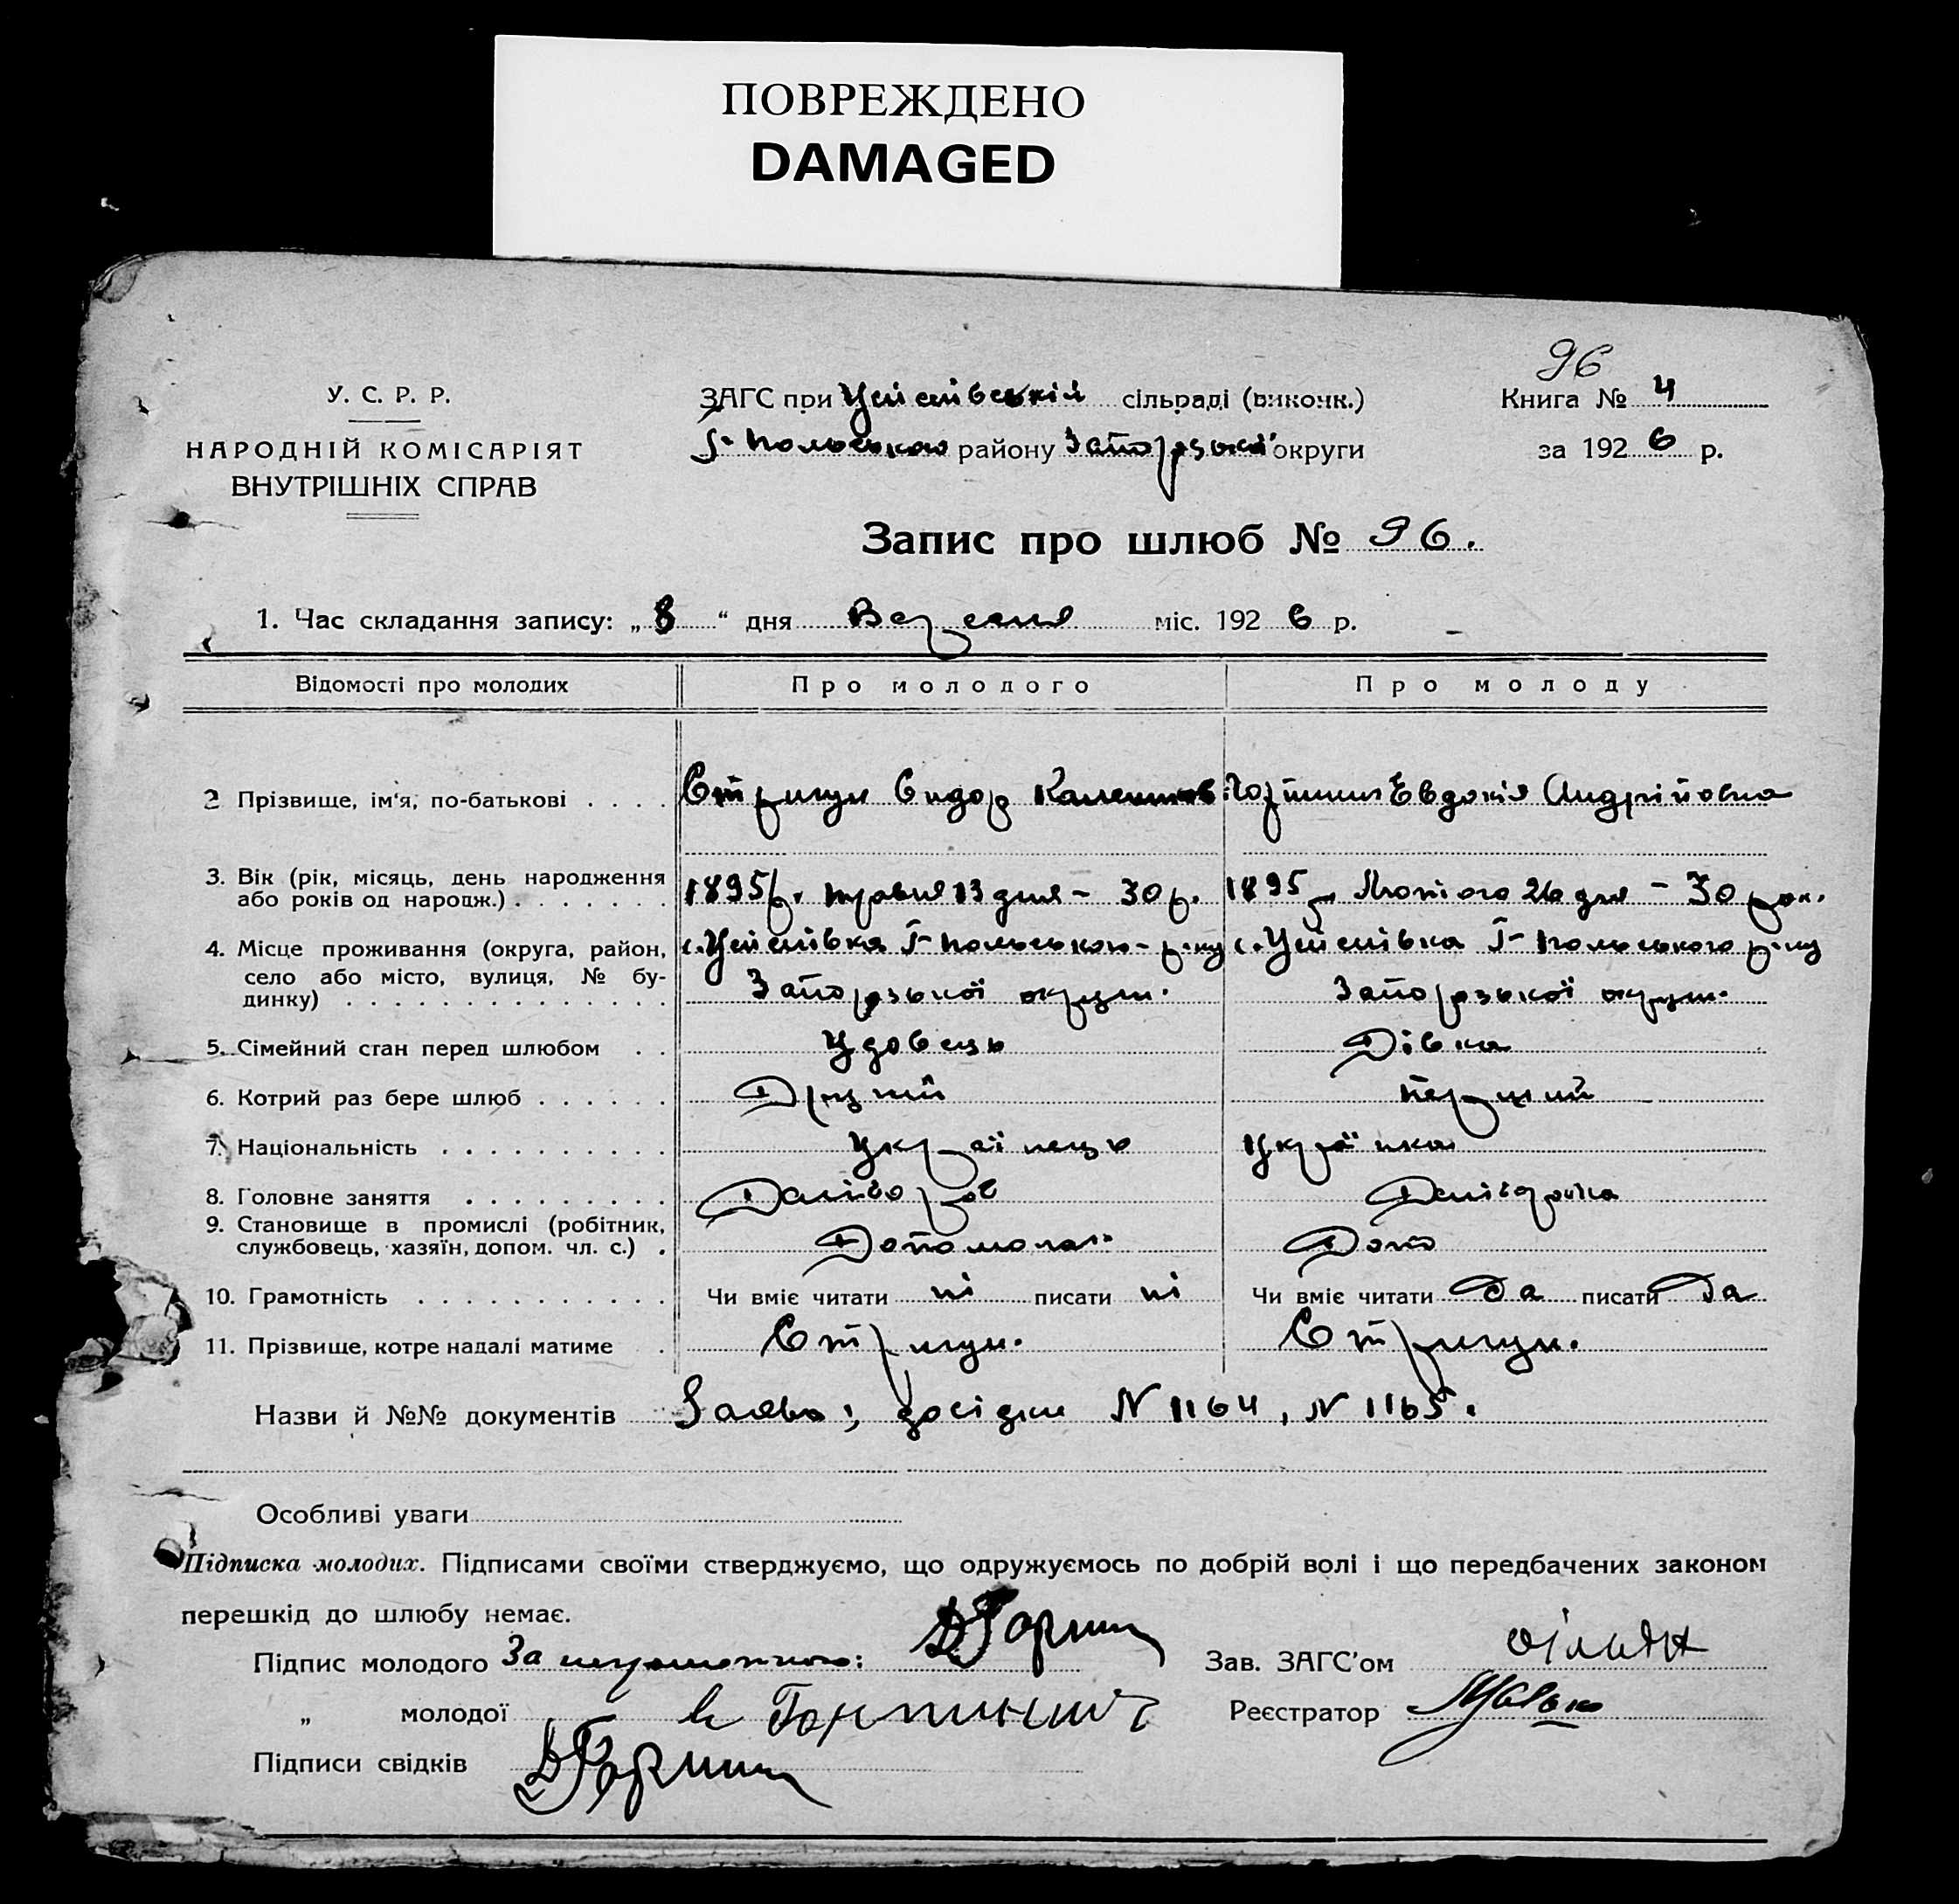 ПОВРЕЖДЕНО
DAMAGED
96
У. С. Р. Р.
НАРОДНІЙ КОМІСАРІЯТ
ВНУТРІШНІХ СПРАВ
ЗАГС при сільраді (виконк.)
Г-Польського району Запорізької округи
Книга № 4
за 1926 р.
Запис про шлюб № 96.
1. Час складання запису: „8“ дня Вересня міс. 1926 р.
Відомості про молодих Про молодого Про молоду
2 Прізвище, ім'я, по-батькові . . . . Стригун Сидор Евдокія Андрійовна
3. Вік (рік, місяць, день народження
або років од народж.) . . . . . . . 1895 р. травня 13 дня - 30 р. 1895 р. Лютого 26 дня - 30 рок.
4. Місце проживання (округа, район,
село або місто, вулиця, № бу-
динку) . . . . . . . . . . . . . .
с. Г-Польського р-ну с. Г-Польського р-ну
Запорізької округи. Запорізької округи.
5. Сімейний стан перед шлюбом . . Удовець Дівка
6. Котрий раз бере шлюб . . . . . . Другий Перший
7. Національність . . . . . . . . . . Українець Українка
8. Головне заняття . . . . . . . . . Хлібороб Хліборобка
9. Становище в промислі (робітник,
службовець, хазяїн, допом. чл. с.) . Допомога
10. Грамотність . . . . . . . . . . . Чи вміє читати ні писати ні Чи вміє читати Да писати Да
11. Прізвище, котре надалі матиме . Стригун. Стригун.
Назви й №№ документів Заява; досідки N 1164, N 1165.
Особливі уваги
Підписка молодих. Підписами своїми стверджуємо, що одружуємось по добрій волі і що передбачених законом
перешкід до шлюбу немає.
Підпис молодого За неграмотного:
Зав. ЗАГС'ом
„ молодої
Реєстратор
Підписи свідків